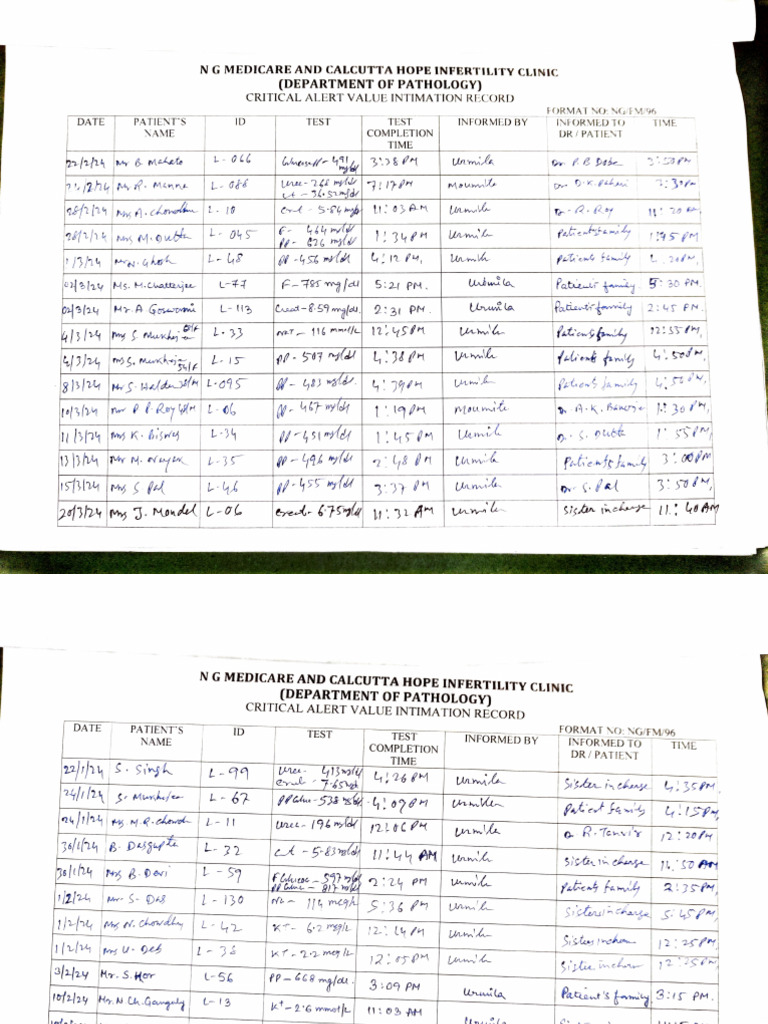 N G MEDICARE AND CALCUTTA HOPE INFERTILITY CLINIC
(DEPARTMENT OF PATHOLOGY)
CRITICAL ALERT VALUE INTIMATION RECORD
FORMAT NO: NG/FM/96
DATE PATIENT'S NAME ID TEST TEST COMPLETION TIME INFORMED BY INFORMED TO DR / PATIENT TIME
22/2/24 Mr B. Mahato L-066 491 mg/dl 3:38 PM Urmila Dr. P.B 3:50PM
/2/24 Mr R. Manna L-088 Urea-268 mg/dl 7:17PM Moumita Dr D.K. 7:30PM
28/2/24 Mrs A. L-10 Creat-5.84 mg/dl 11:03 AM Urmila Dr-R. Roy 11:20 AM
28/2/24 Mrs M. Dutta L-045 F- 464 mg/dl PP- 626 mg/dl 1:34PM Urmila Patient's family 1:45 PM
1/3/24 Mr N. Ghosh L-48 PP-456 mg/dl 4:12 PM, Urmila Patient's family 4:20PM,
02/3/24 Ms. M. Chatterjee L-77 F-785 mg/dl 5:21 PM. Urmila Patient's family 5:30 PM.
02/3/24 Mr. A Goswami L-113 Creat-8.59 mg/dl. 2:31 PM. Urmila Patient's family 2:45 PM.
4/3/24 Mrs S. L-33 Na+- 116 mmol/L 12:45PM Urmila Patient's family 12:55PM,
4/3/24 Mrs S. 54/F L-15 PP-507 mg/dl 4:38 PM Urmila Patient's family 4:50PM,
8/3/24 Mr S. Halder L-095 PP-483 mg/dl. 4:39PM Urmila Patient's family 4:50 PM,
10/3/24 Mr P. P. Roy L-06 PP-467 mg/dl 1:19 PM Moumita Dr. A.K. Banerjee 1:30 PM,
11/3/24 Mrs K. Biswas L-34 PP-451 mg/dl 1:45 PM Urmila Dr. S. Dutta 1:55PM,
13/3/24 Mr M. Nayak L-35 PP-496 mg/dl 2:48 PM Urmila Patient's family 3:00PM
15/3/24 Mrs S Pal L-46 PP-455 mg/dl 3:37 PM Urmila Dr S. Pal 3:50PM,
20/3/24 Mrs J. Mondal L-06 Creat-6.75 mg/dl 11:32 AM Urmila Sister in charge 11:40AM
N G MEDICARE AND CALCUTTA HOPE INFERTILITY CLINIC
(DEPARTMENT OF PATHOLOGY)
CRITICAL ALERT VALUE INTIMATION RECORD
FORMAT NO: NG/FM/96
DATE PATIENT'S NAME ID TEST TEST COMPLETION TIME INFORMED BY INFORMED TO DR / PATIENT TIME
22/1/24 S. Singh L-99 Urea- 413 mg/dl Creat- 7.65 mg/dl 4:26PM Urmila Sister in charge 4:35PM,
24/1/24 S. L-67 PPGluc-538 mg/dl 4:09PM Urmila Patient family 4:15PM,
24/1/24 Mrs M.R. L-11 Urea-196 mg/dl 12:06PM Urmila Dr R. 12:20PM
30/1/24 B. Dasgupta L-32 Cr-5.83 mg/dl 11:44 AM Urmila Sister in charge 11:50 AM
30/1/24 Mrs B. Devi L-59 F Glucose-597 mg/dl PPGluc-817 mg/dl 2:24 PM Urmila Patient's family 2:35PM,
1/2/24 Mr S. Das L-130 Na- 114 meq/L 5:36 PM Urmila Sister in charge 5:45 PM,
1/2/24 Mrs N. Chowdhury L-42 K+- 6.2 meq/L 12:14PM Urmila Sister in 12:25PM
1/2/24 Mrs U. Deb L-36 K+-2.2 meq/L 12:05PM Urmila Sister in 12:25PM
3/2/24 Mr. S. Hor L-56 PP-668 mg/dl. 3:09 PM Urmila Patient's family 3:15 PM.
10/2/24 Mr. N Ch. Ganguly L-13 K+-2.6 mmol/L 11:03 AM